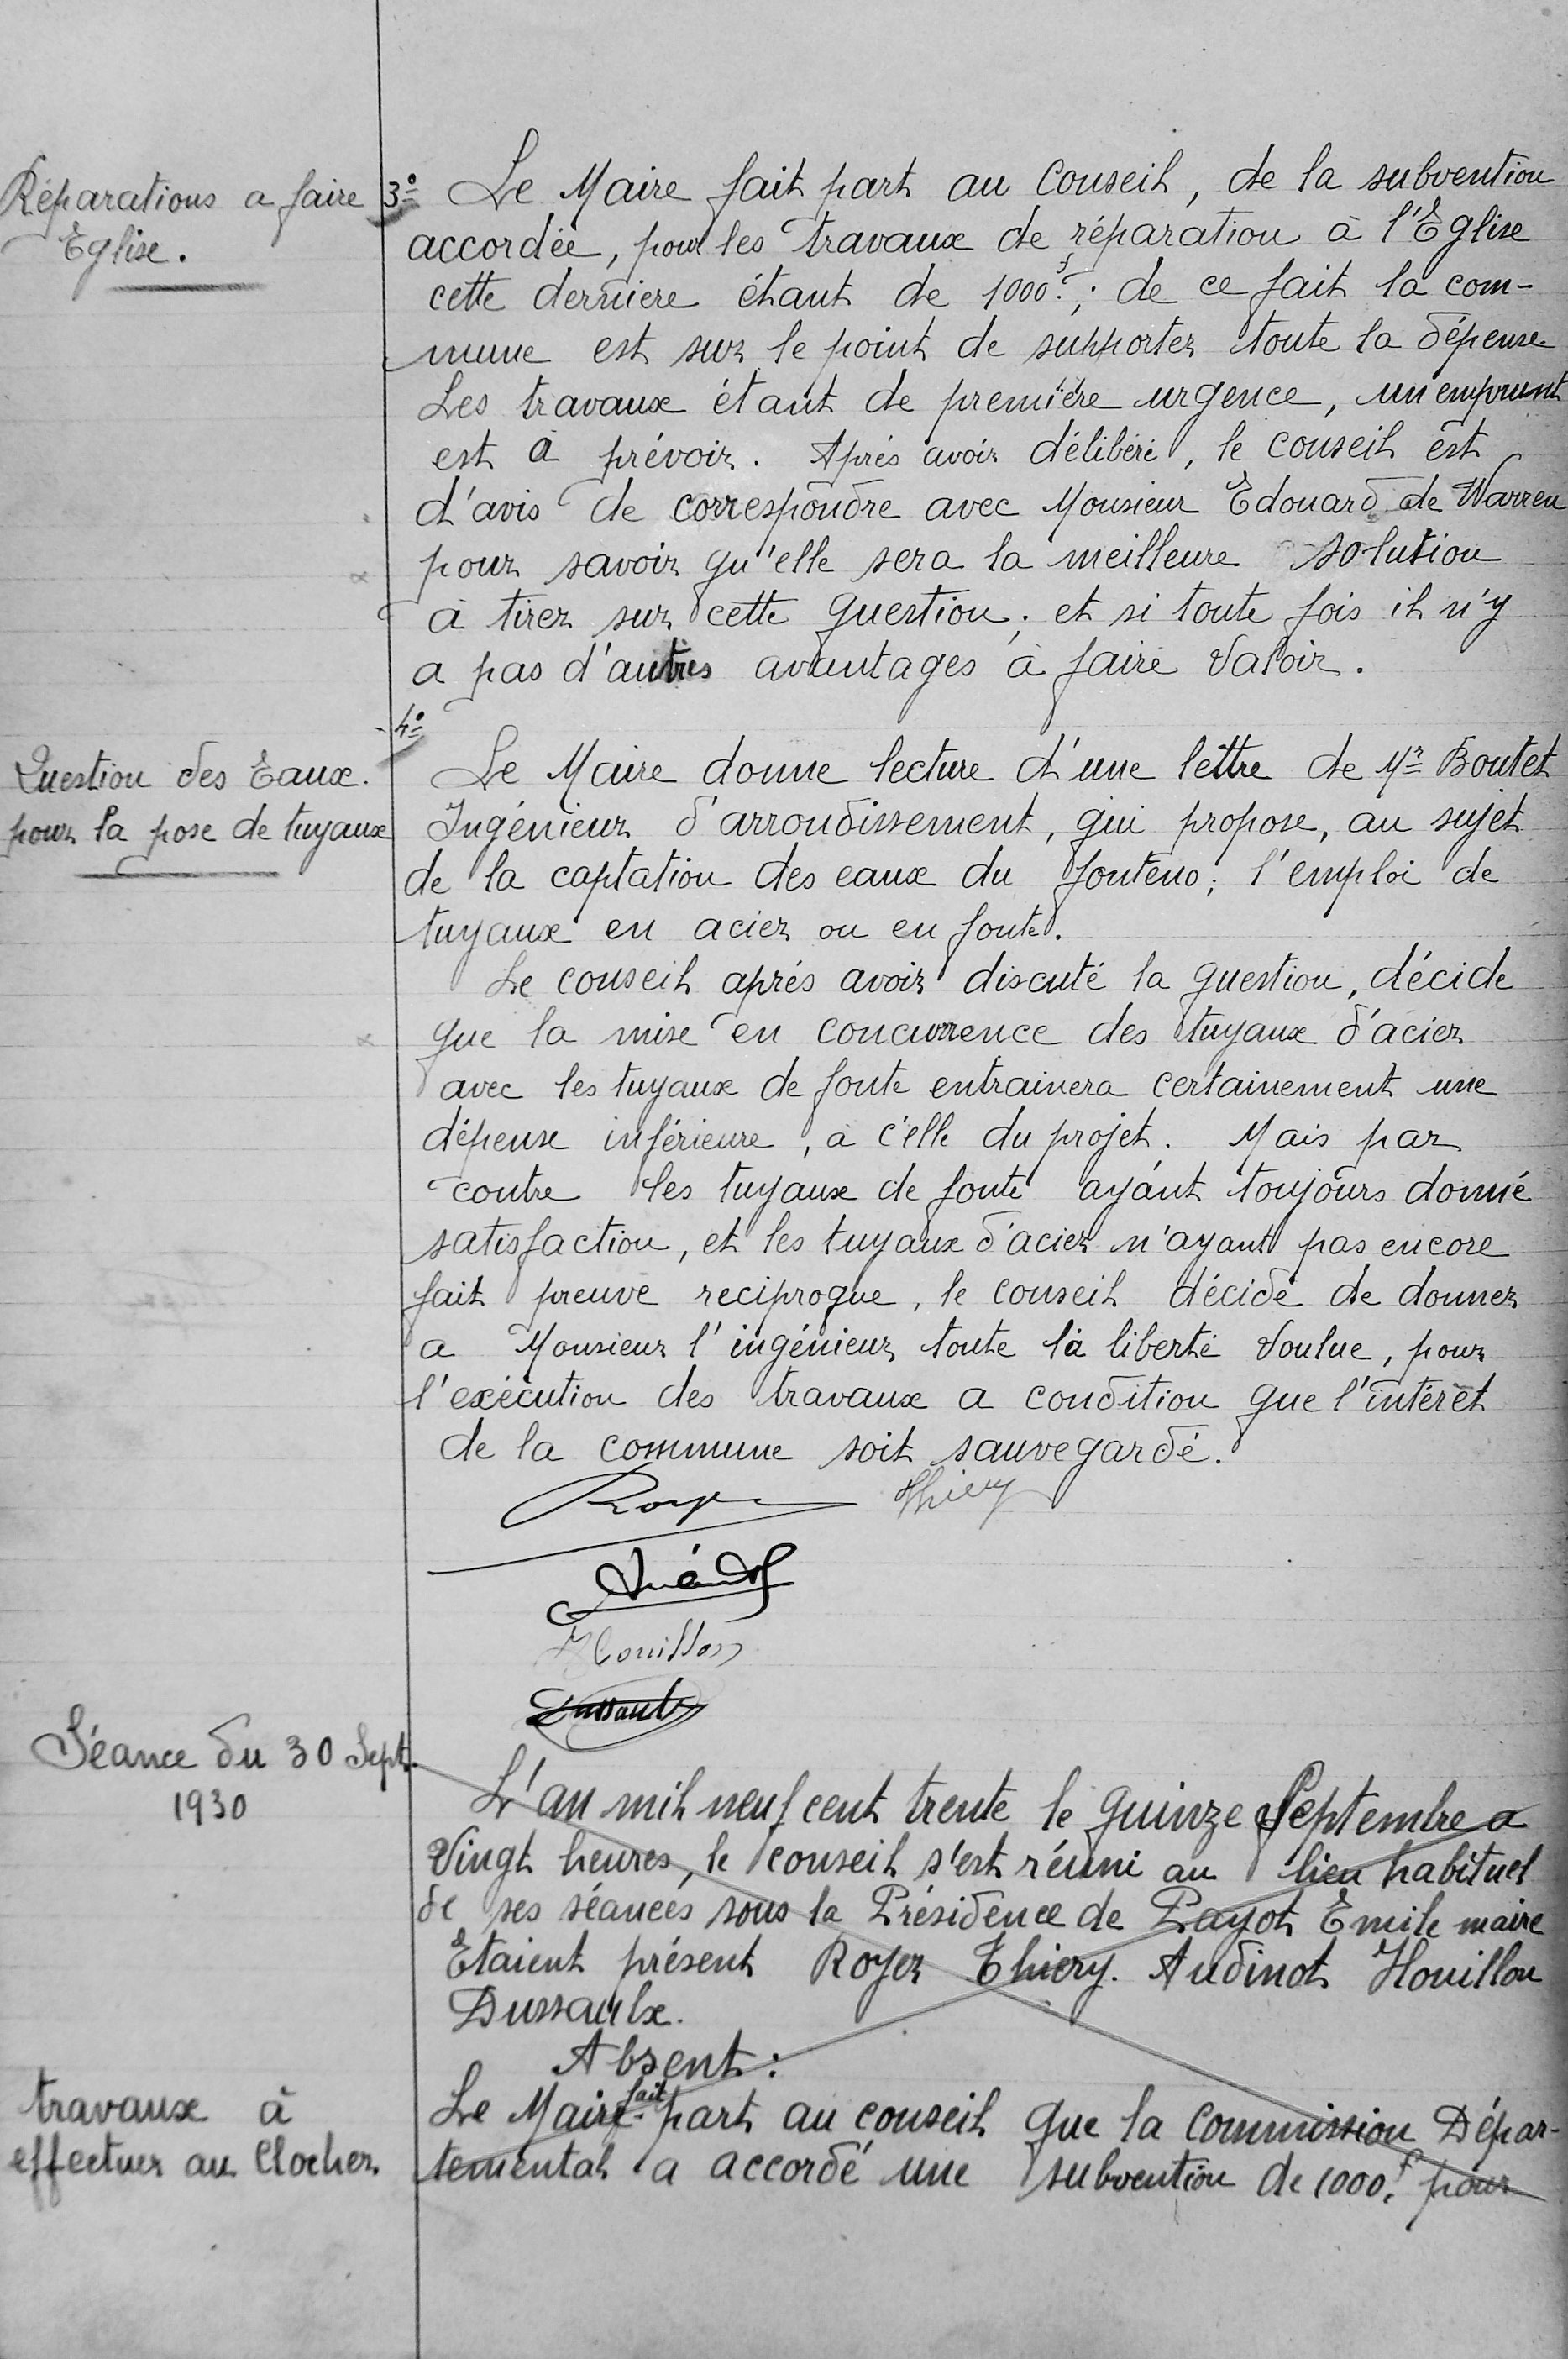 Réparations a faire
Eglise.
3º Le Maire fait part au Conseil, de la subvention
accordée, pour les travaux de réparation à l'Eglise
cette derniere étant de 1000.f; de ce fait la com-
mune est sur le point de supporter toute la dépense.
Les travaux étant de première urgence, un emprunt
est à prévoir. Aprés avoir délibéré, le conseil est
d'avis de correspondre avec Monsieur Edouard de Warren
pour savoir qu'elle sera la meilleure solution
à tirer sur cette question; et si toute fois il n'y
a pas d'autres avantages à faire valoir.
Question des Eaux.
pour la pose de tuyaux
4º
Le Maire donne lecture d'une lettre de Mr Boutet
Ingénieur d'arrondissement, qui propose, au sujet
de la captation des eaux du fonteno; l'emploi de
tuyaux en acier ou en fonte.
Le conseil aprés avoir discuté la question, décide
que la mise en concurrence des tuyaux d'acier
avec les tuyaux de fonte entrainera certainement une
dépense inférieure, à c'elle du projet. Mais par
contre les tuyaux de fonte ayant toujours donné
satisfaction, et les tuyaux d'acier n'ayant pas encore
fait preuve reciproque, le conseil décide de donner
a Monsieur l'ingénieur toute la liberté voulue, pour
l'exécution des travaux a condition que l'intérêt
de la commune soit sauvegardé.
Royer Thiery
Houillon
Dussaulx
Séance du 30 Sept.
1930
L'an mil neuf cent trente le quinze Septembre a
vingt heures, le conseil s'est réuni au lieu habituel
de ses séances sous la Présidence de Payot Emile maire
Etaient présent Royer Thiery. Audinot Houillon
Dussaulx.
Absent:
travaux à
effectuer au Clocher
Le Maire fait part au conseil que la Commission Dépar-
temental a accordé une subvention de 1000.f pour